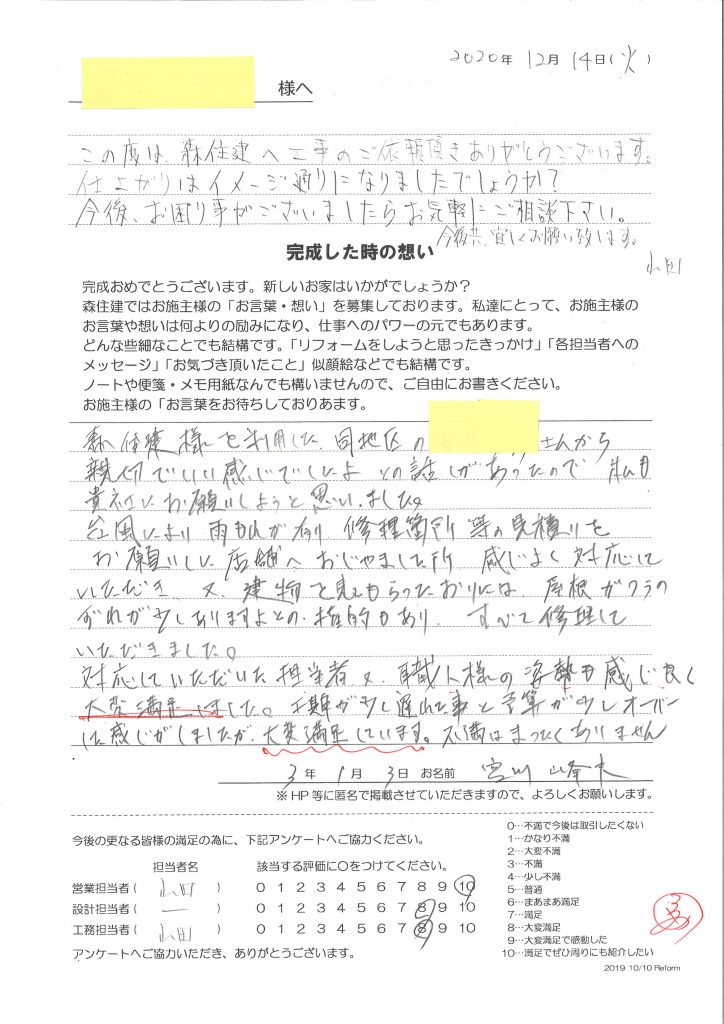 2020年 12月 14日(火)
様へ
この度は、森住建へ工事のご依頼頂きありがとうございます。
仕上がりはイメージ通りになりましたでしょうか?
今後、お困り事がございましたらお気軽にご相談下さい。
今後共、宜しくお願い致します。
山田
完成した時の想い
完成おめでとうございます。新しいお家はいかがでしょうか?
森住建ではお施主様の「お言葉・想い」を募集しております。私達にとって、お施主様の
お言葉や想いは何よりの励みになり、仕事へのパワーの元でもあります。
どんな些細なことでも結構です。「リフォームをしようと思ったきっかけ」「各担当者への
メッセージ」「お気づき頂いたこと」似顔絵などでも結構です。
ノートや便箋・メモ用紙なんでも構いませんので、ご自由にお書きください。
お施主様の「お言葉をお待ちしておりあます。
森住建様を利用した同地区の さんから
親切でいい感じでしたよ との話しがあったので 私も
貴社にお願いしようと思いました。
台風により雨もれが有り 修理箇所等の見積りを
お願いした店舗へおじゃました所 感じよく対応して
いただき 又、建物を見てもらったおりには、屋根ガワラの
ずれが少しありますよとの指摘もあり、すべて修理して
いただきました。
対応していただいた担当者、又、職人様の姿勢も感じ良く
大変満足しました。工期が少し遅れた事と予算が少しオーバー
した感じがしましたが、大変満足しています。不満はまったくありません
3年 1月 3日 お名前 宮川
※HP等に匿名で掲載させていただきますので、よろしくお願いします。
今後の更なる皆様の満足の為に、下記アンケートへご協力ください。
担当者名 該当する評価に○をつけてください。
営業担当者( 山田 ) 0 1 2 3 4 5 6 7 8 9 10
設計担当者( ー ) 0 1 2 3 4 5 6 7 8 9 10
工務担当者( 山田 ) 0 1 2 3 4 5 6 7 8 9 10
アンケートへご協力いただき、ありがとうございます。
0…不満で今後は取引したくない
1…かなり不満
2…大変不満
3…不満
4…少し不満
5…普通
6…まあまあ満足
7…満足
8…大変満足
9…大変満足で感動した
10…満足でぜひ周りにも紹介したい
2019 10/10 Reform